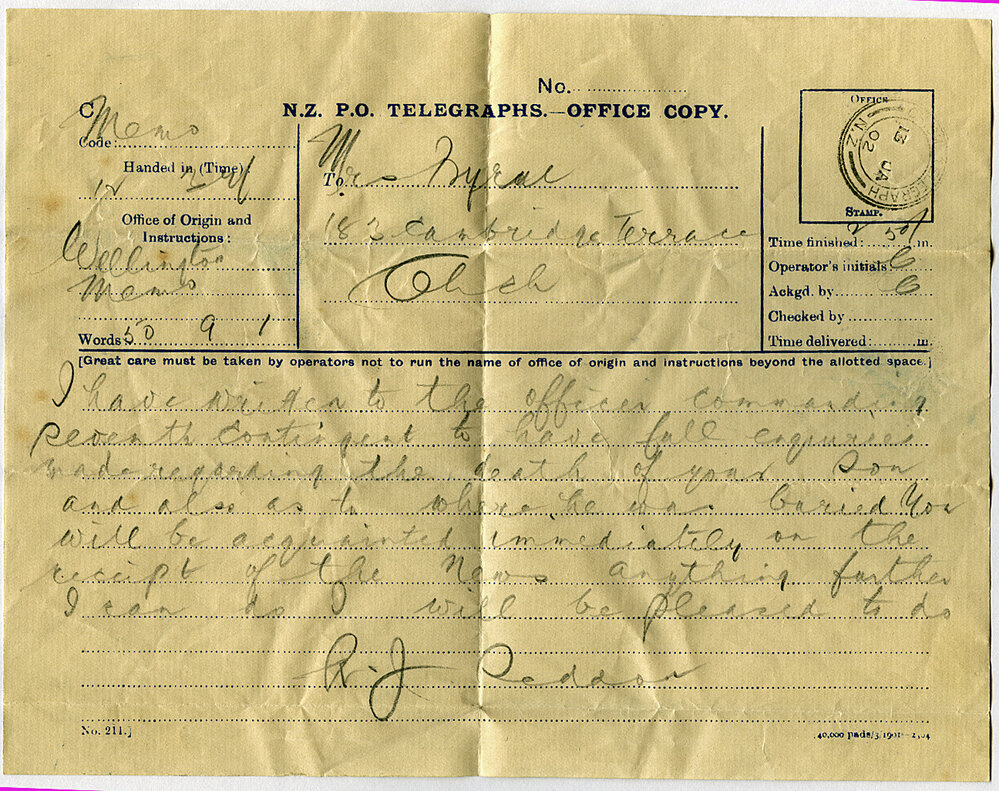 No.
N.Z. P.O. TELEGRAPHS.—OFFICE COPY.
C
Memo
Code:
Handed in (Time):
12
Office of Origin and
Instructions:
Wellington
Memo
Words 50 9 1
To Mrs Byrne
183 Cambridge Terrace
Chch
OFFICE
TELEGRAPH
N.Z
13 JA
02
STAMP.
Time finished: 2 50 m.
Operator's initials C
Ackgd. by C
Checked by
Time delivered: m.
[Great care must be taken by operators not to run the name of office of origin and instructions beyond the allotted space.]
I have written to the officer commanding
seventh contingent to have full enquiries
made regarding the death of your son
and also as to where he was buried You
will be acquainted immediately on the
receipt of the News anything further
I can do I will be pleased to do
R.J. Seddon
No. 211.]
[40,000 pads/3/1901—2504